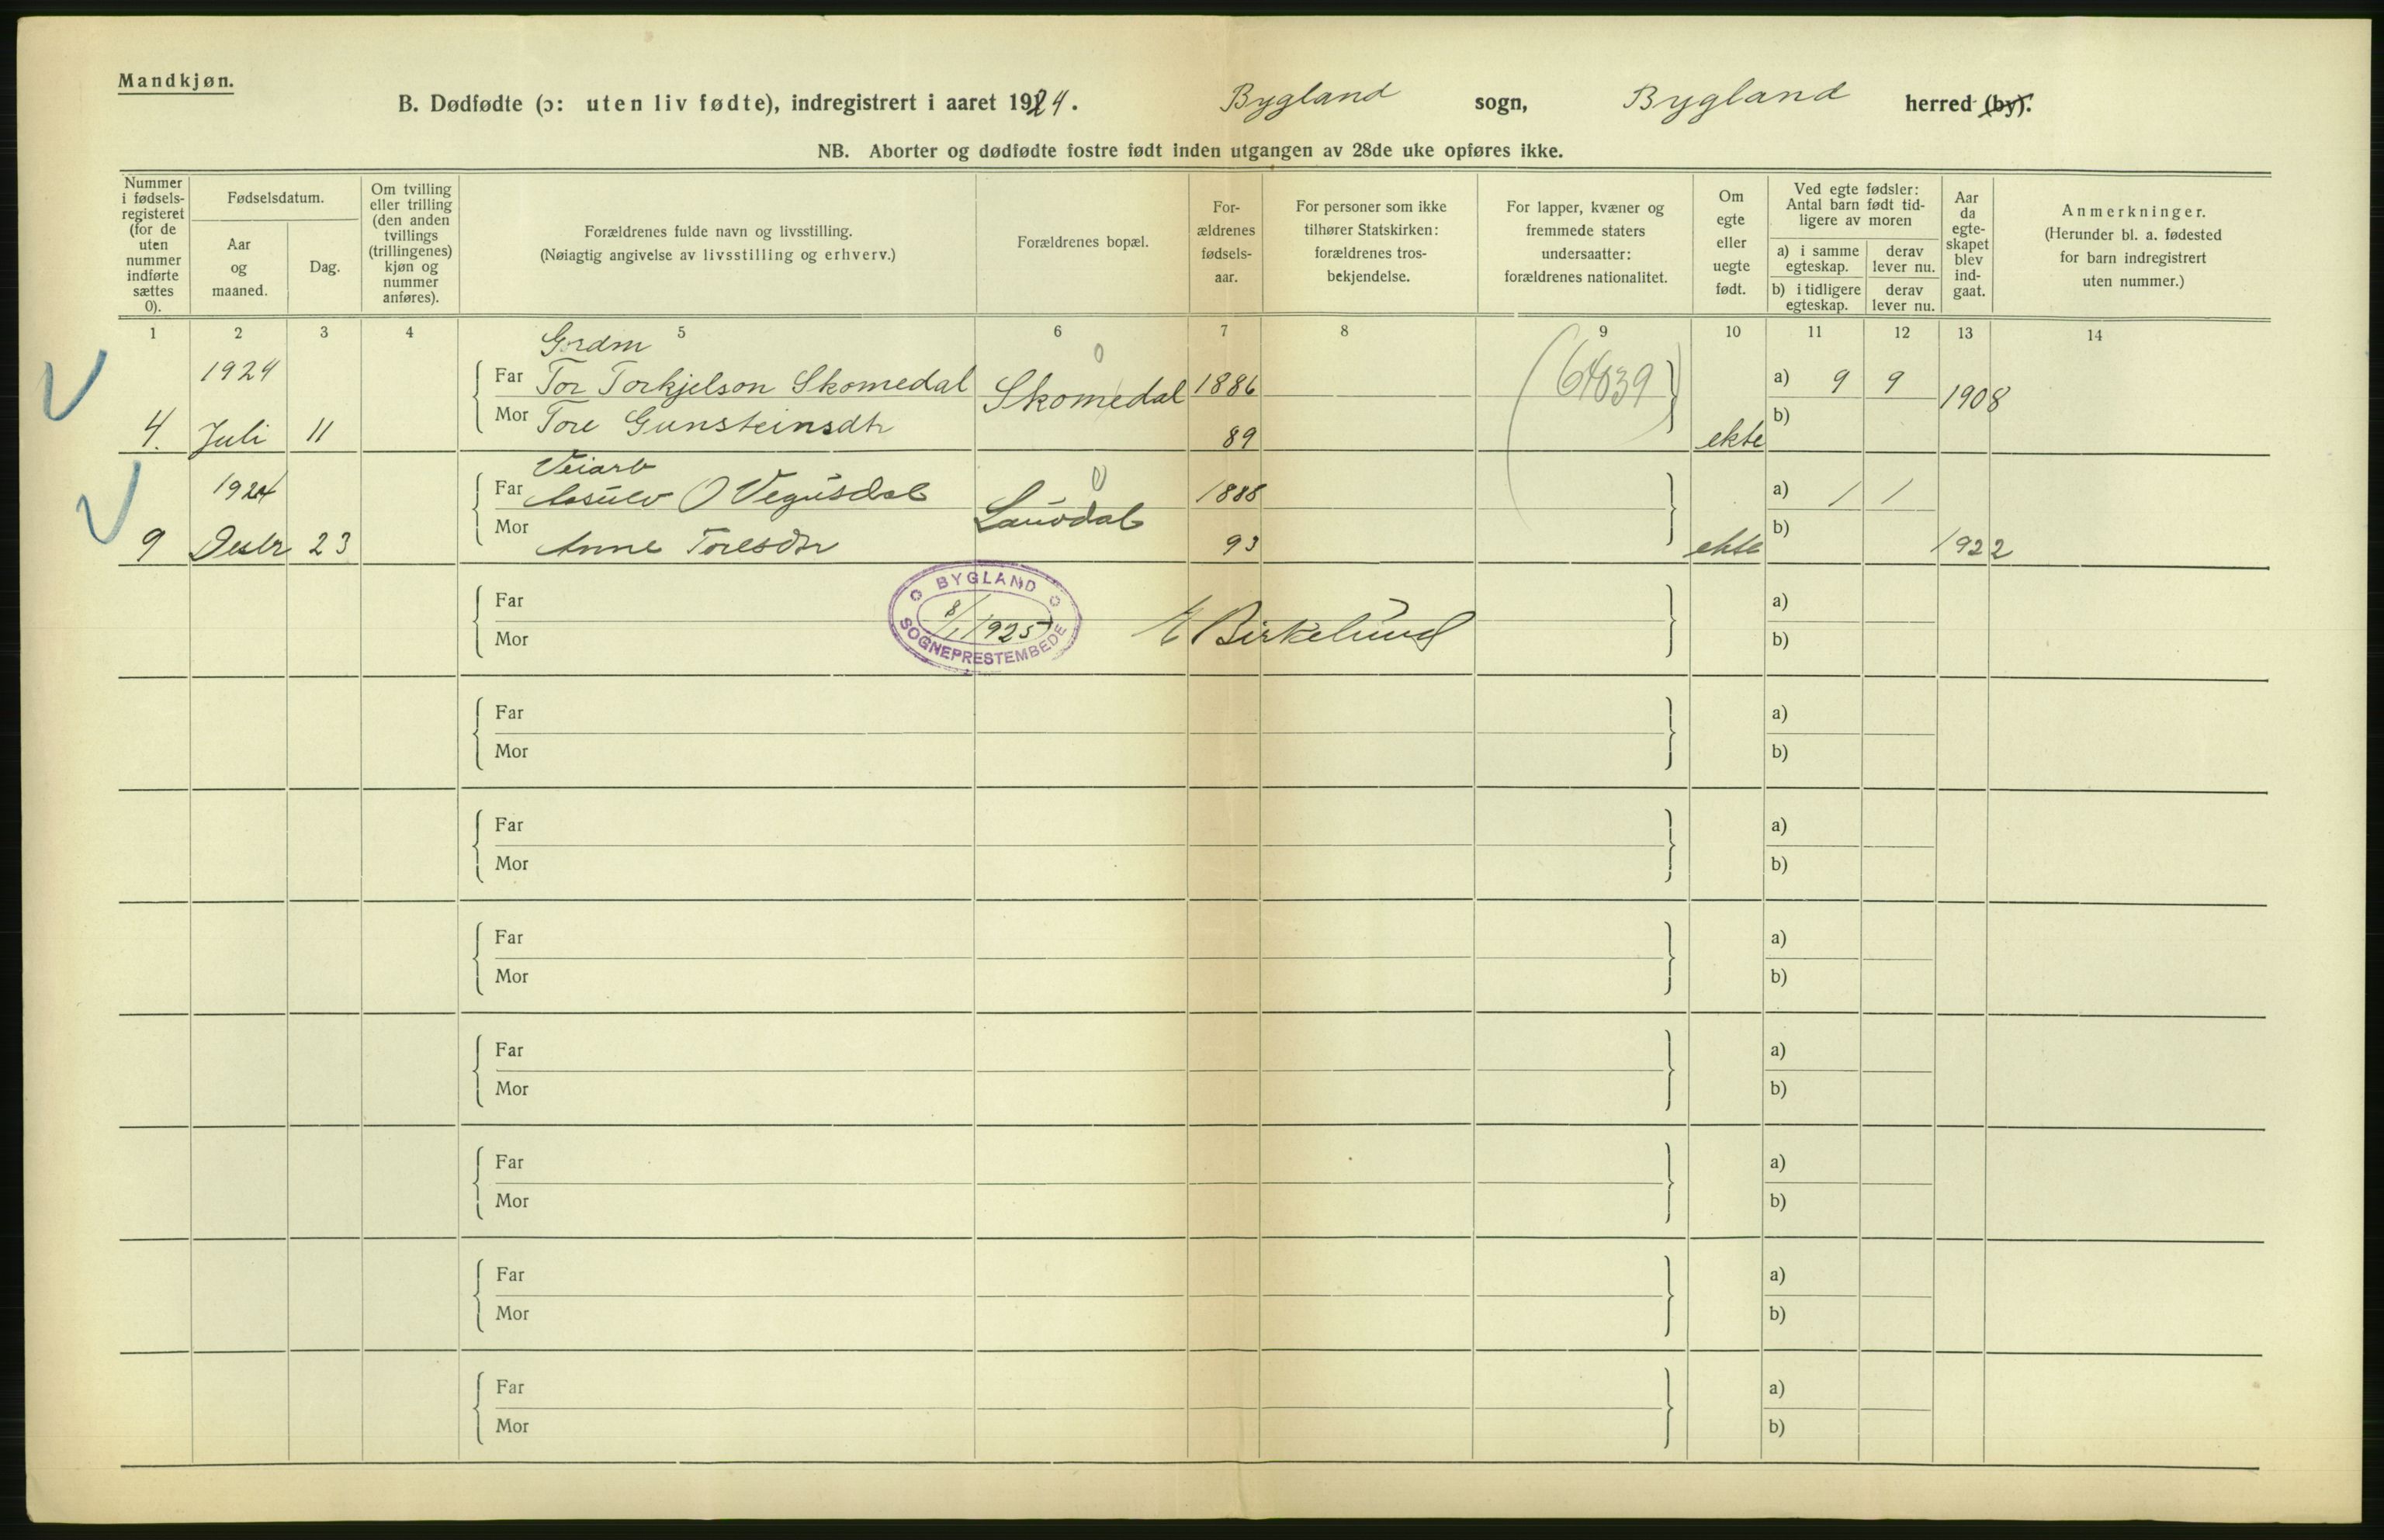 Mandkjøn.
B. Dødfødte (ɔ: uten liv fødte), indregistrert i aaret 1924. Bygland sogn, Bygland herred (by).
NB. Aborter og dødfødte fostre født inden utgangen av 28de uke opføres ikke.
Nummer i fødselsregisteret (for de uten nummer indførte sættes 0).
Fødselsdatum.
Aar og maaned.
Dag.
Om tvilling eller trilling (den anden tvillings (trillingenes) kjøn og nummer anføres).
Forældrenes fulde navn og livsstilling.
(Nøiagtig angivelse av livsstilling og erhverv.)
Forældrenes bopæl.
For-ældrenes fødsels-aar.
For personer som ikke tilhører Statskirken: forældrenes tros-bekjendelse.
For lapper, kvæner og fremmede staters undersaatter: forældrenes nationalitet.
Om egte eller uegte født.
Ved egte fødsler: Antal barn født tid-ligere av moren
a) i samme egteskap.
derav lever nu.
b) i tidligere egteskap.
derav lever nu.
Aar da egte-skapet blev ind-gaat.
Anmerkninger.
(Herunder bl. a. fødested for barn indregistrert uten nummer.)
1 2 3 4 5 6 7 8 9 10 11 12 13 14
Grdm 0
1924 Far Tor Torkjelson Skomedal Skomedal 1886 a) 9 9 1908
4. Juli 11 Mor Tore Gunsteinsdtr 89 ekte b)
Veiarb 0
1924 Far Aasulv O Vegusdal Lauvdal 1888 a) 1 1
9 Desbr 23 Mor Anne Toresdtr 93 ekte b) 1922
BYGLAND
8/1 1925
SOGNEPRESTEMBEDE
Birkelund
Far a)
Mor b)
Far a)
Mor b)
Far a)
Mor b)
Far a)
Mor b)
Far a)
Mor b)
Far a)
Mor b)
Far a)
Mor b)
Far a)
Mor b)